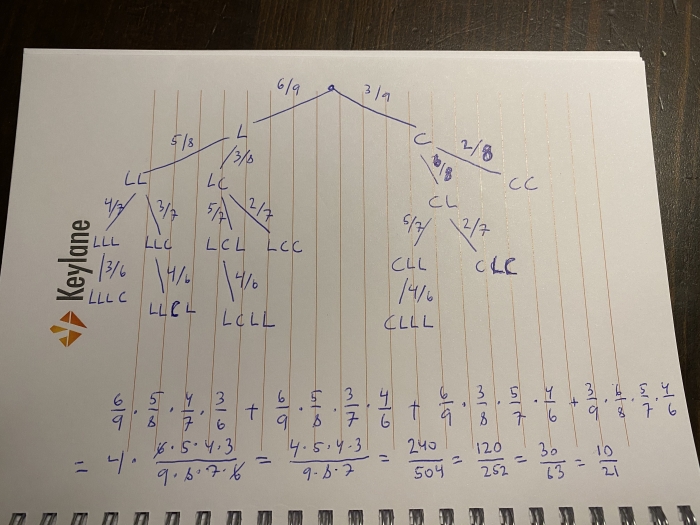 6/9 3/9
5/8 L 3/8 C 6/8 2/8
LL LC CL CC
4/7 3/7 5/7 2/7 5/7 2/7
LLL LLC LCL LCC CLL CLC
3/6 4/6 4/6 4/6
LLLC LLCL LCLL CLLL
Keylane
6/9 · 5/8 · 4/7 · 3/6 + 6/9 · 5/8 · 3/7 · 4/6 + 6/9 · 3/8 · 5/7 · 4/6 + 3/9 · 6/8 · 5/7 · 4/6
= 4 · 6·5·4·3/9·8·7·6 = 4·5·4·3/9·8·7 = 240/504 = 120/252 = 30/63 = 10/21